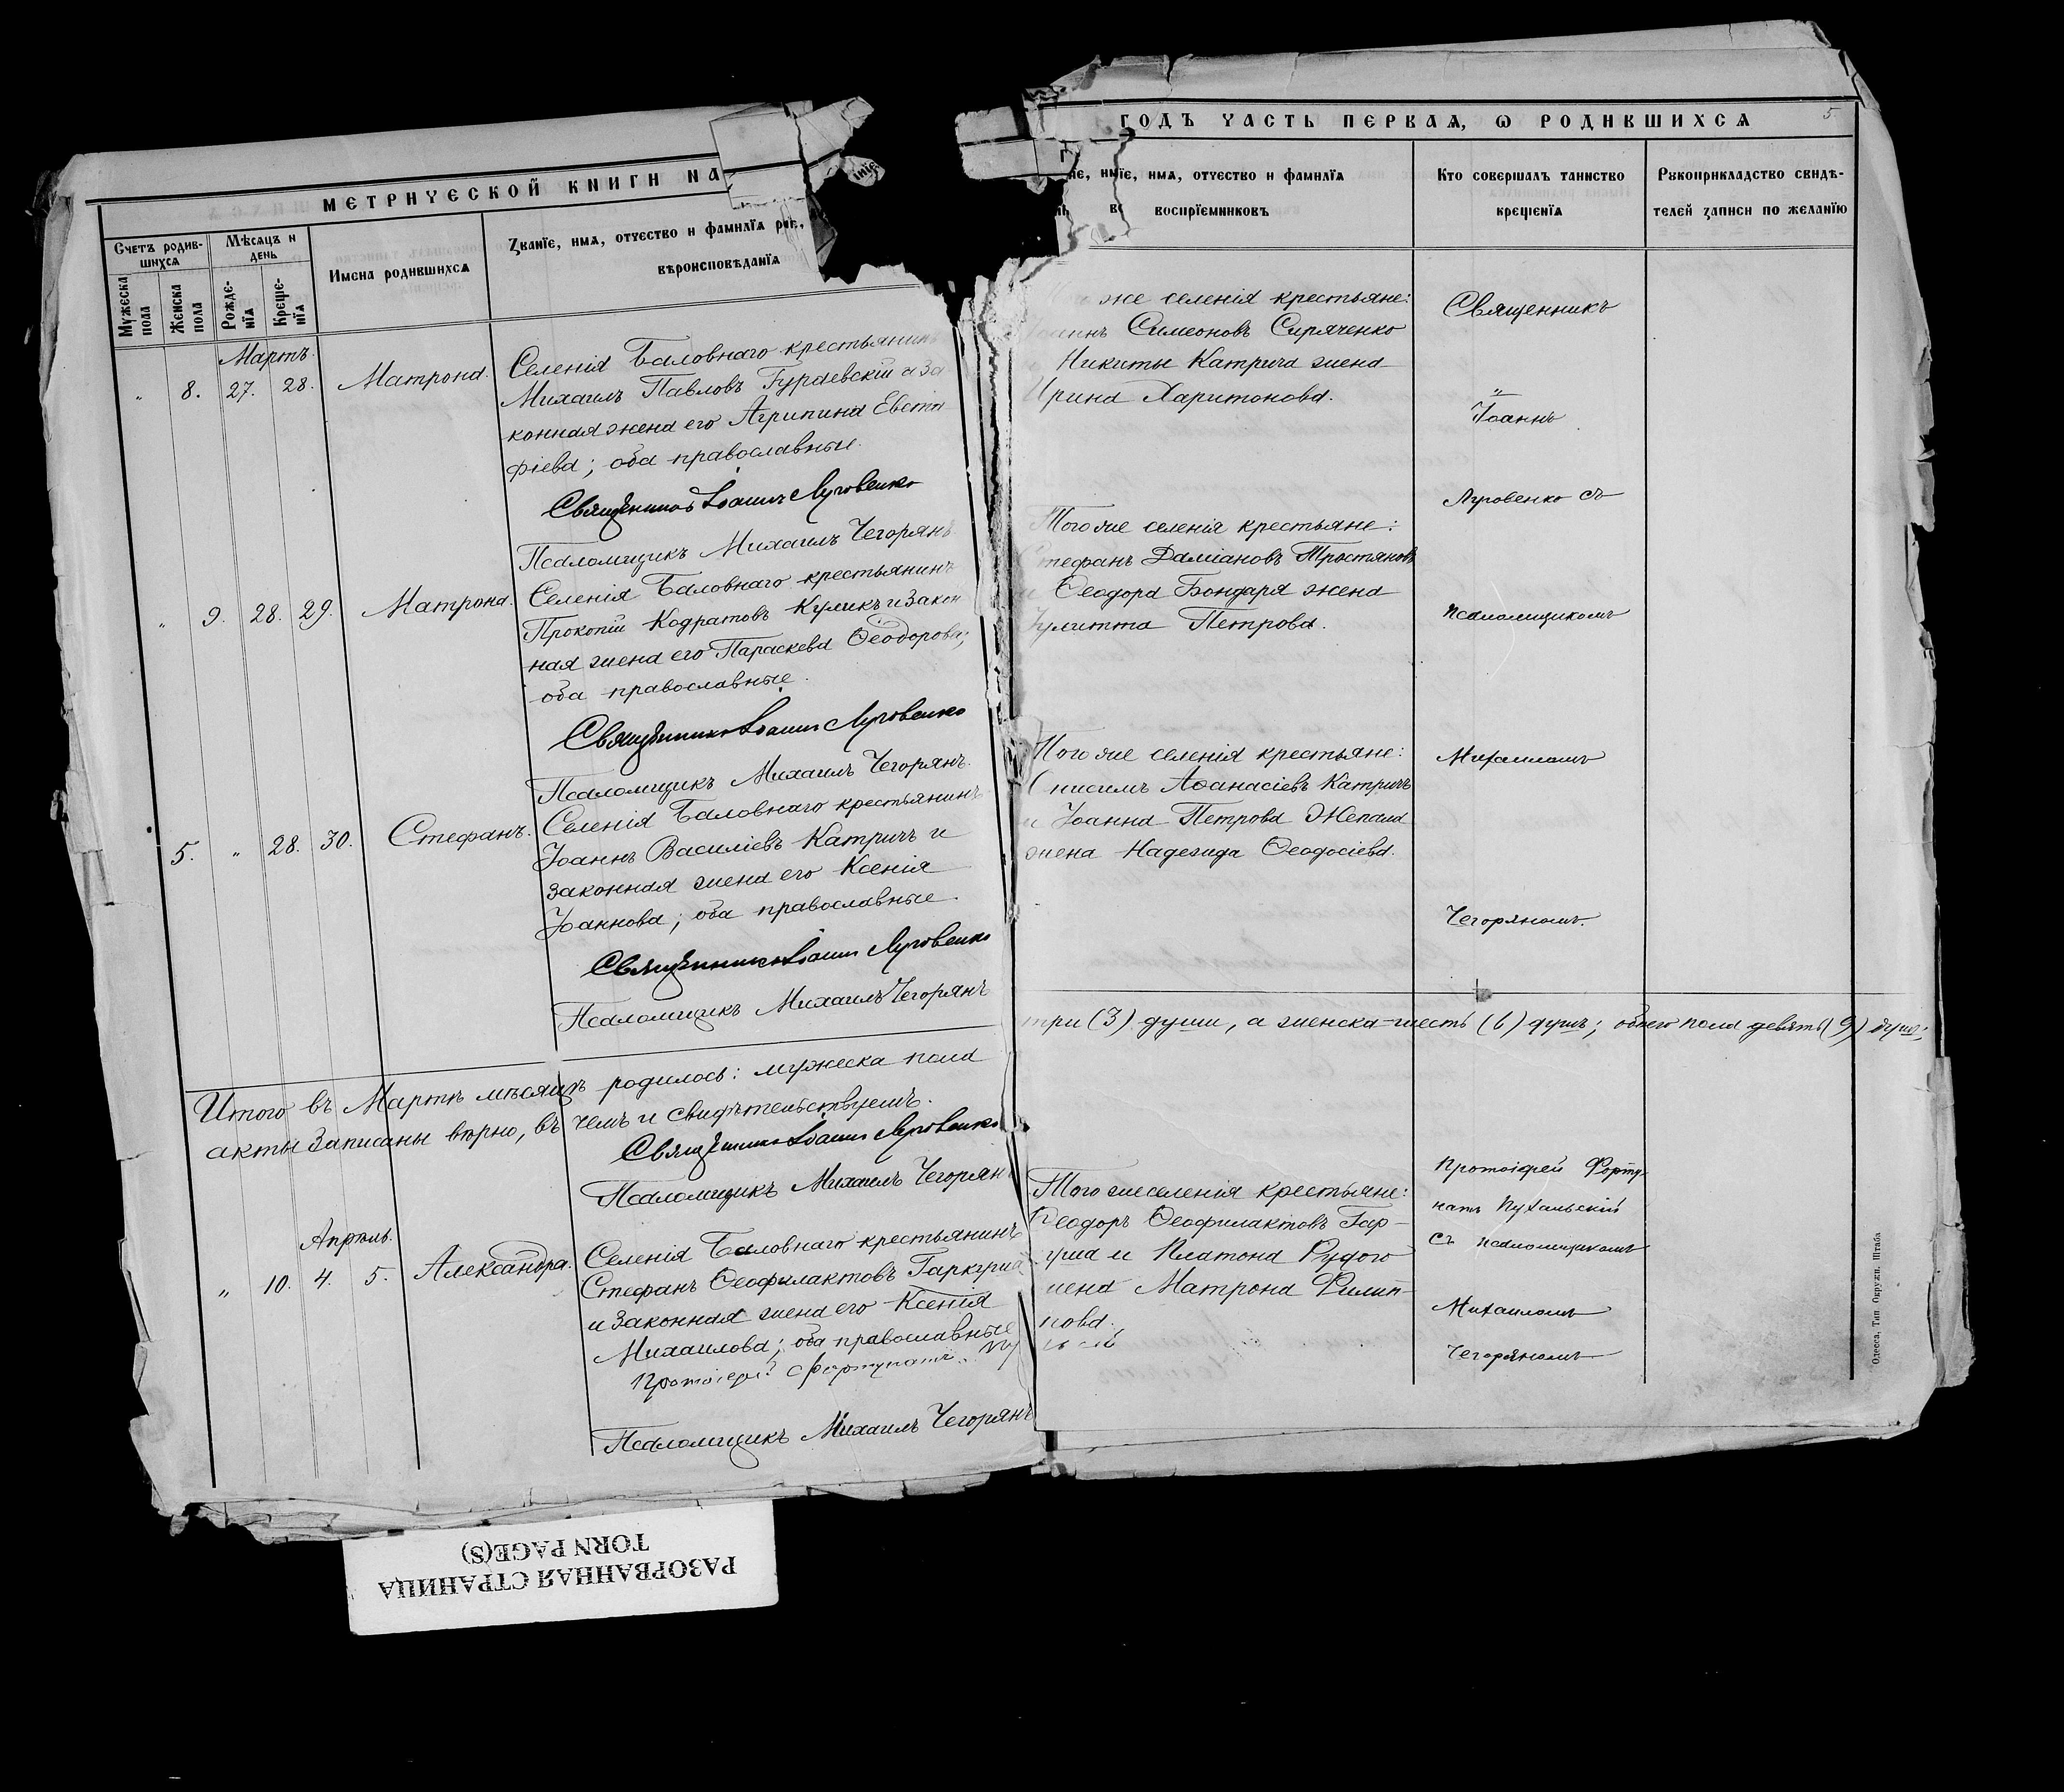 МЕТРИЧЕСКОЙ КНИГИ НА
Счетъ родив-
шихся
Мѣсяцъ и
день
Мужеска
пола
Женска
пола
Рожде-
нія
Креще-
нія
Имена родившихся
Званіе, имя, отчество и фамилія
вѣроисповѣданія
Мартъ.
" 8. 27. 28. Матрона.
Селенія Баловнаго крестьянинъ
Михаилъ Павловъ Гураевскій и за
конная жена его Агрипина Евста
фіева; оба православные.
Священникъ Іоаннъ Луговенко
Псаломщикъ Михаилъ Чегорянъ
" 9. 28. 29. Матрона.
Селенія Баловнаго крестьянинъ
Прокопій Кодратовъ Куликъ и закон
ная жена его Параскева Ѳеодорова;
оба православные.
Священникъ Іоаннъ Луговенко
Псаломщикъ Михаилъ Чегорянъ.
5. " 28. 30. Стефанъ.
Селенія Баловнаго крестьянинъ
Іоаннъ Василіевъ Катричъ и
законная жена его Ксенія
Іоаннова; оба православные.
Священникъ Іоаннъ Луговенко
Псаломщикъ Михаилъ Чегорянъ
Итого въ Мартѣ мѣсяцѣ родилось: мужеска пола
акты записаны вѣрно, въ чемъ и свидѣтельствуемъ.
Священникъ Іоаннъ Луговенко
Псаломщикъ Михаилъ Чегорянъ
Апрѣль.
" 10. 4. 5. Александра.
Селенія Баловнаго крестьянинъ
Стефанъ Ѳеофилактовъ Гаркуша
и законная жена его Ксенія
Михаилова; оба православные
Протоіерей Фортунатъ
Псаломщикъ Михаилъ Чегорянъ
ГОДЪ ЧАСТЬ ПЕРВАЯ, Ѡ РОДИВШИХСЯ
5
имя, отчество и фамилія
воспріемниковъ
Кто совершалъ таинство
крещенія
Рукоприкладство свидѣ-
телей записи по желанію
же селенія крестьяне:
Симеоновъ Сиряченко
Никиты Катрича жена
Ирина Харитонова.
Того же селенія крестьяне:
Стефанъ Даміановъ Тростяновъ
и Ѳеодора Бондаря жена
Іулитта Петрова.
Того же селенія крестьяне:
Онисимъ Аѳанасіевъ Катричъ
и Іоанна Петрова Жепала
жена Надежда Ѳеодосіева.
Священникъ
"
Іоаннъ
Луговенко съ
псаломщикомъ
Михаиломъ
Чегоряномъ.
три (3) души, а женска-шесть (6) душъ; обоего пола девять (9) душъ;
Того же селенія крестьяне:
Ѳеодоръ Ѳеофилактовъ Гар-
куша и Платона Рудого
жена Матрона Филип-
пова.
Протоіерей Форту-
натъ Пухальскій
съ псаломщикомъ
Михаиломъ
Чегоряномъ
Одесса, Тип. Окружн. Штаба
РАЗОРВАННАЯ СТРАНИЦА
TORN PAGE(S)